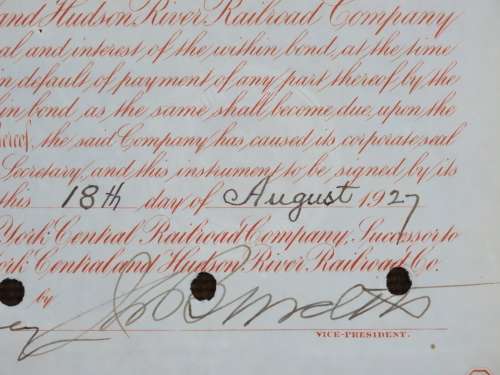 and Hudson River Railroad Company
al and interest of the within bond, at the time
in default of payment of any part thereof by the
in bond as the same shall become due, upon the
hereof, the said Company has caused its corporate seal
Secretary, and this instrument to be signed by its
this 18th day of August 1927
York Central Railroad Company, Successor to
ork Central and Hudson River Railroad Co.
by
VICE-PRESIDENT.